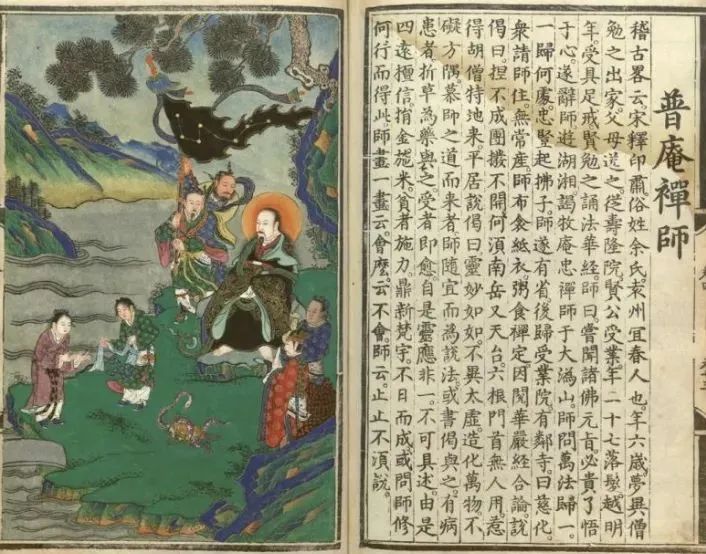 普庵禪師
稽古畧云。宋釋印肅。俗姓余氏。袁州宜春人也。年六歲。夢異僧
勉之出家。父母送之。從壽隆院賢公受業。年二十七落髮。越明
年受具足戒。賢勉之誦法華經。師曰。嘗聞諸佛元旨。必貴了悟
于心。遂辭師遊湖湘。謁牧庵忠禪師于大溈山。師問萬法歸一。
一歸何處。忠豎起拂子。師遂有省。後歸受業院。有鄰寺。曰慈化。
衆請師住。無常産。師布衾紙衣。粥食禪定。因閱華嚴經合論。說
偈曰。捏不成團撥不開。何須南岳又天台。六根門首無人用。惹
得胡僧特地來。平居說偈曰。靈妙如如。不異太虛。造化萬物。不
礙方隅。慕師之道而來者。師隨宜而為說法。或書偈與之。有病
患者。折草為藥與之。受者即愈。自是靈應非一。不可具述。由是
四遠檀信。捐金施米。貧者施力。鼎新梵宇。不日而成。或問師修
何行而得此。師畫一畫云。會麽。云不會。師云。止止不須說。